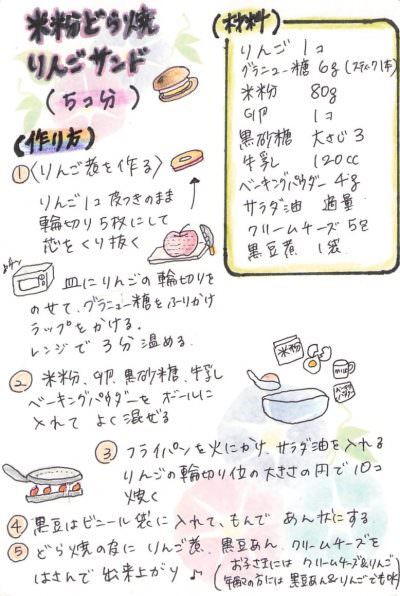 米粉どら焼
りんごサンド
(5コ分)
(材料)
りんご 1コ
グラニュー糖 6g (スティック1本)
米粉 80g
卵 1コ
黒砂糖 大さじ3
牛乳 120cc
ベーキングパウダー 4g
サラダ油 適量
クリームチーズ 5g
黒豆煮 1袋
(作り方)
① 〈りんご煮を作る〉
りんご1コ 皮つきのまま
輪切り5枚にして
芯をくり抜く
皿にりんごの輪切りを
のせて、グラニュー糖をふりかけ
ラップをかける。
レンジで3分温める。
② 米粉、卵、黒砂糖、牛乳
ベーキングパウダーをボールに
入れて よく混ぜる
米粉
③ フライパンを火にかけ、サラダ油を入れる
りんごの輪切り位の大きさの円で10コ
焼く
④ 黒豆はビニール袋に入れて、もんで あん状にする
⑤ どら焼の皮に りんご煮、黒豆あん、クリームチーズを
はさんで出来上がり♪
(お子さまには クリームチーズ&りんご
年輩の方には 黒豆あん&りんごでも〇K)